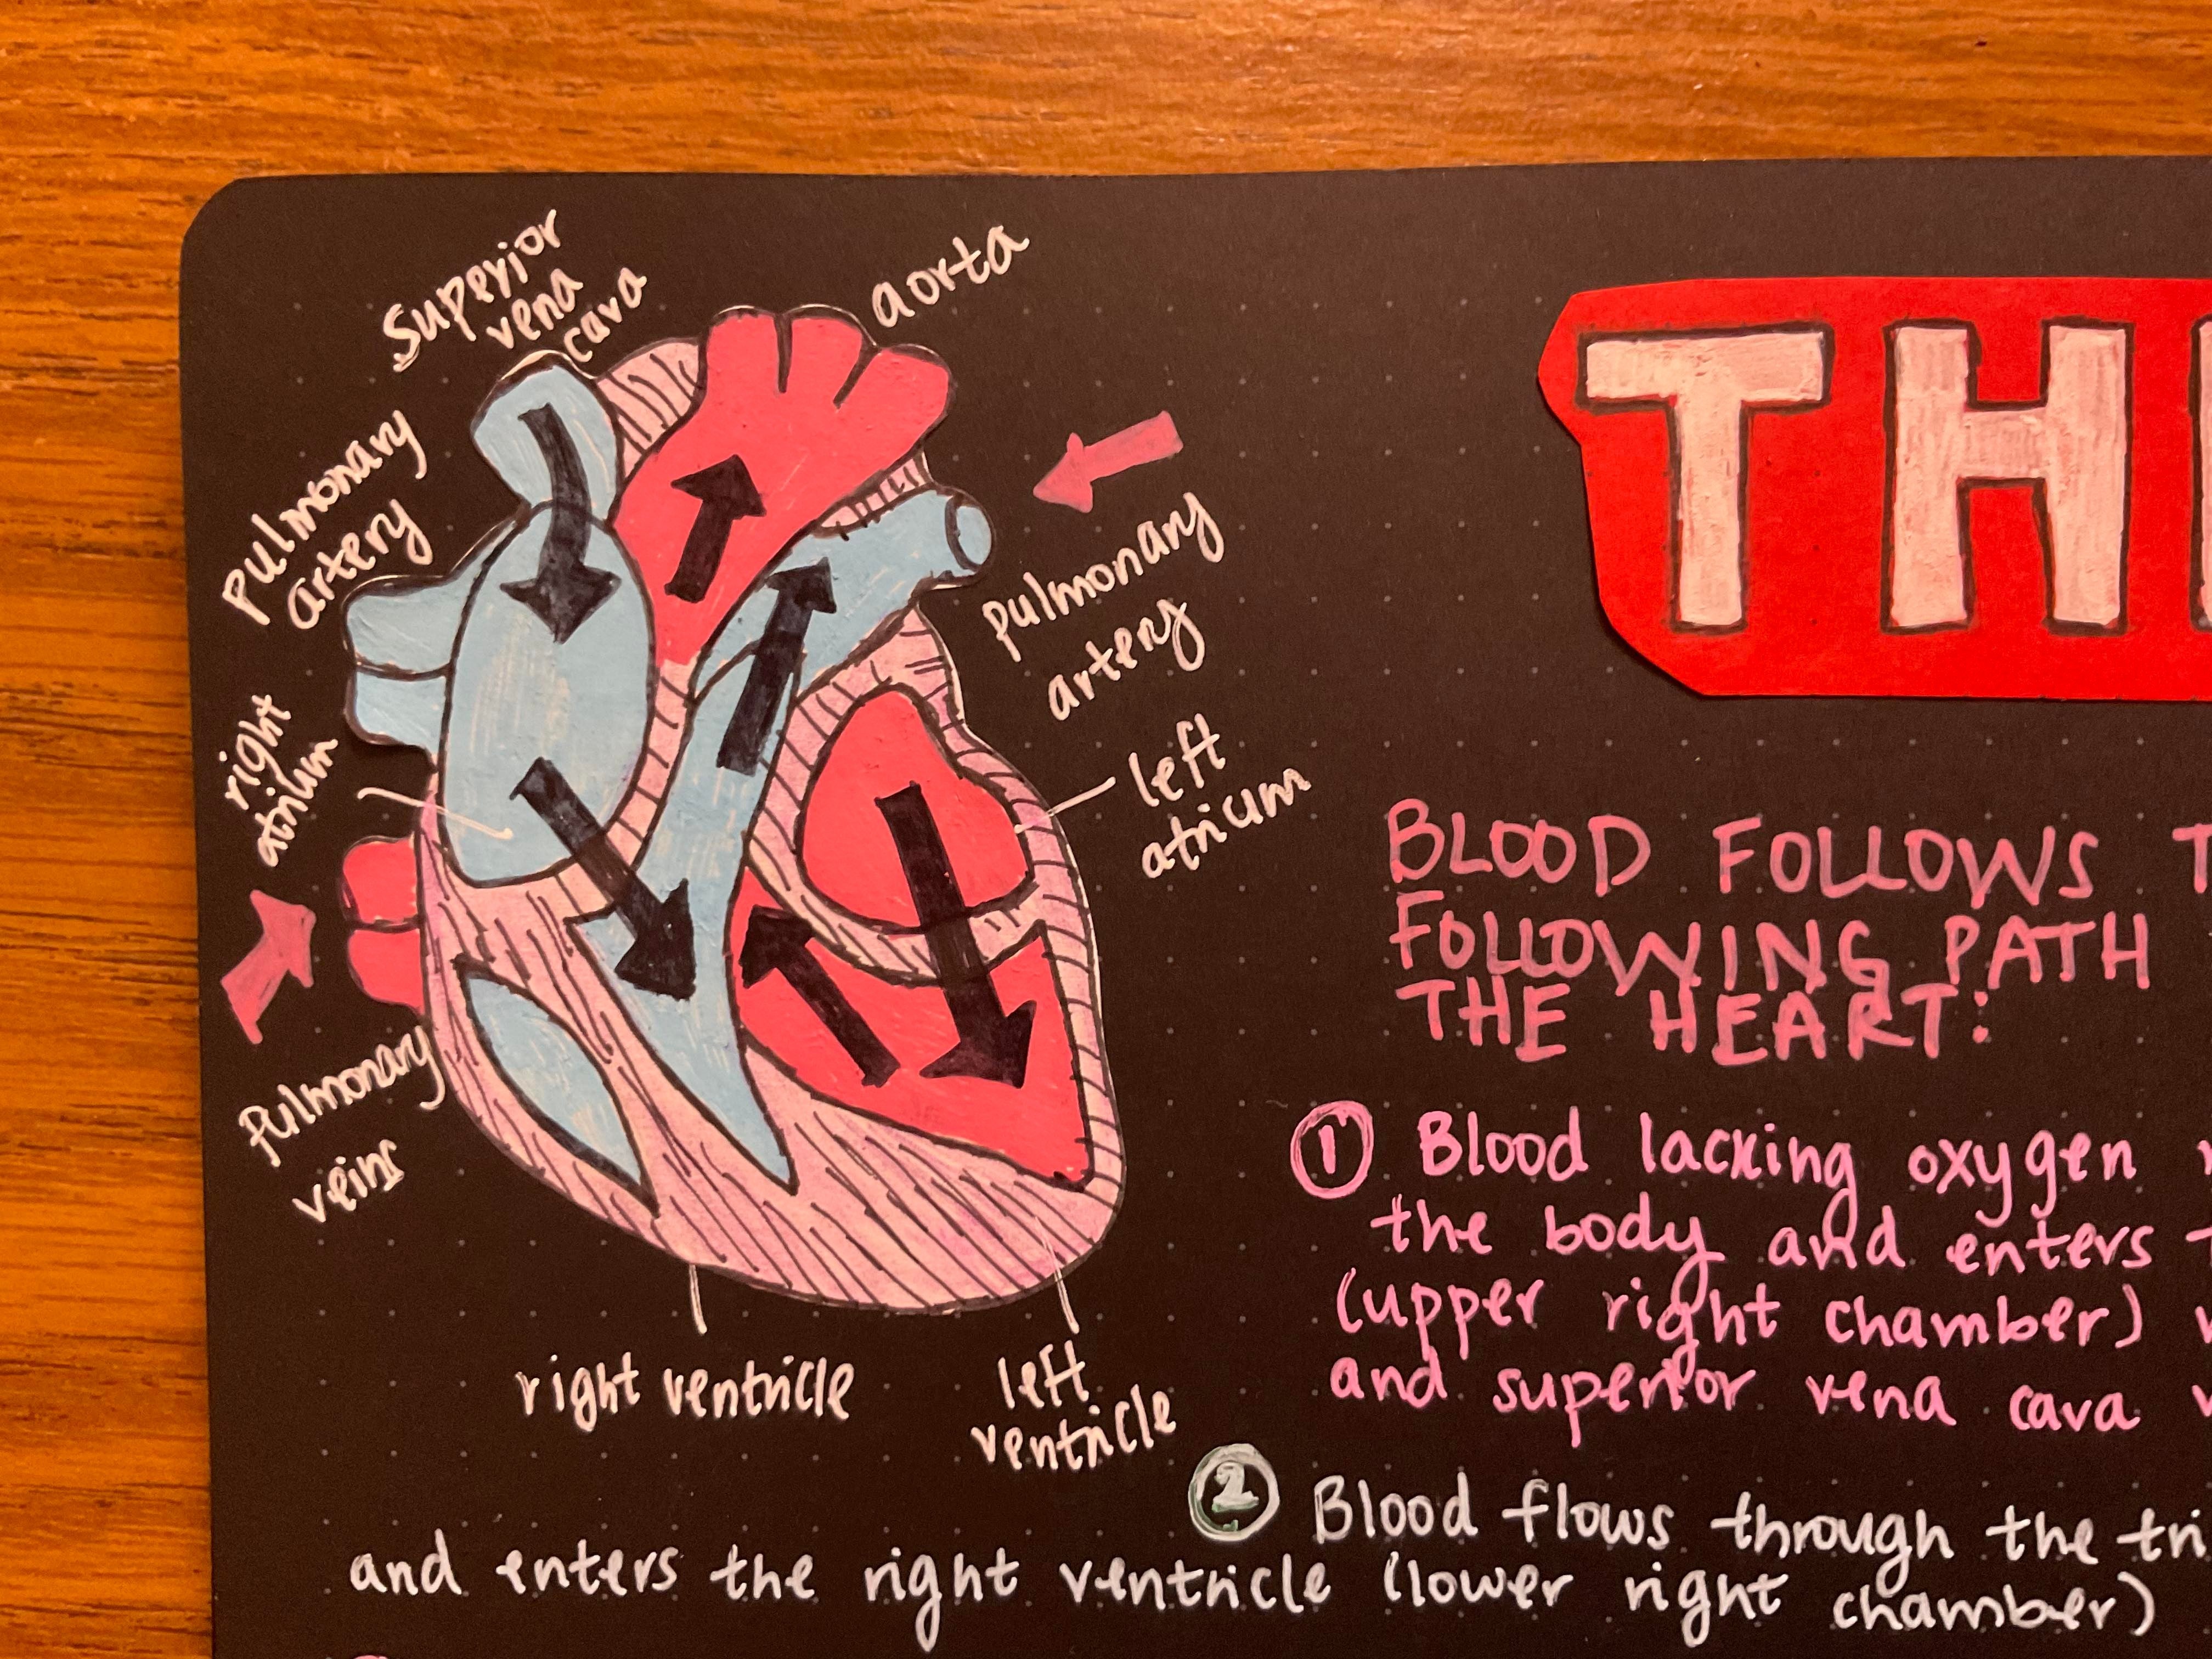 Superior
vena
cava
aorta
Pulmonary
artery
pulmonary
artery
right
atrium
left
atrium
Pulmonary
veins
right ventricle
left
ventricle
TH
BLOOD FOLLOWS T
FOLLOWING PATH
THE HEART:
1 Blood lacking oxygen
the body and enters
(upper right chamber)
and superior vena cava
2 Blood flows through the tri
and enters the right ventricle (lower right chamber)